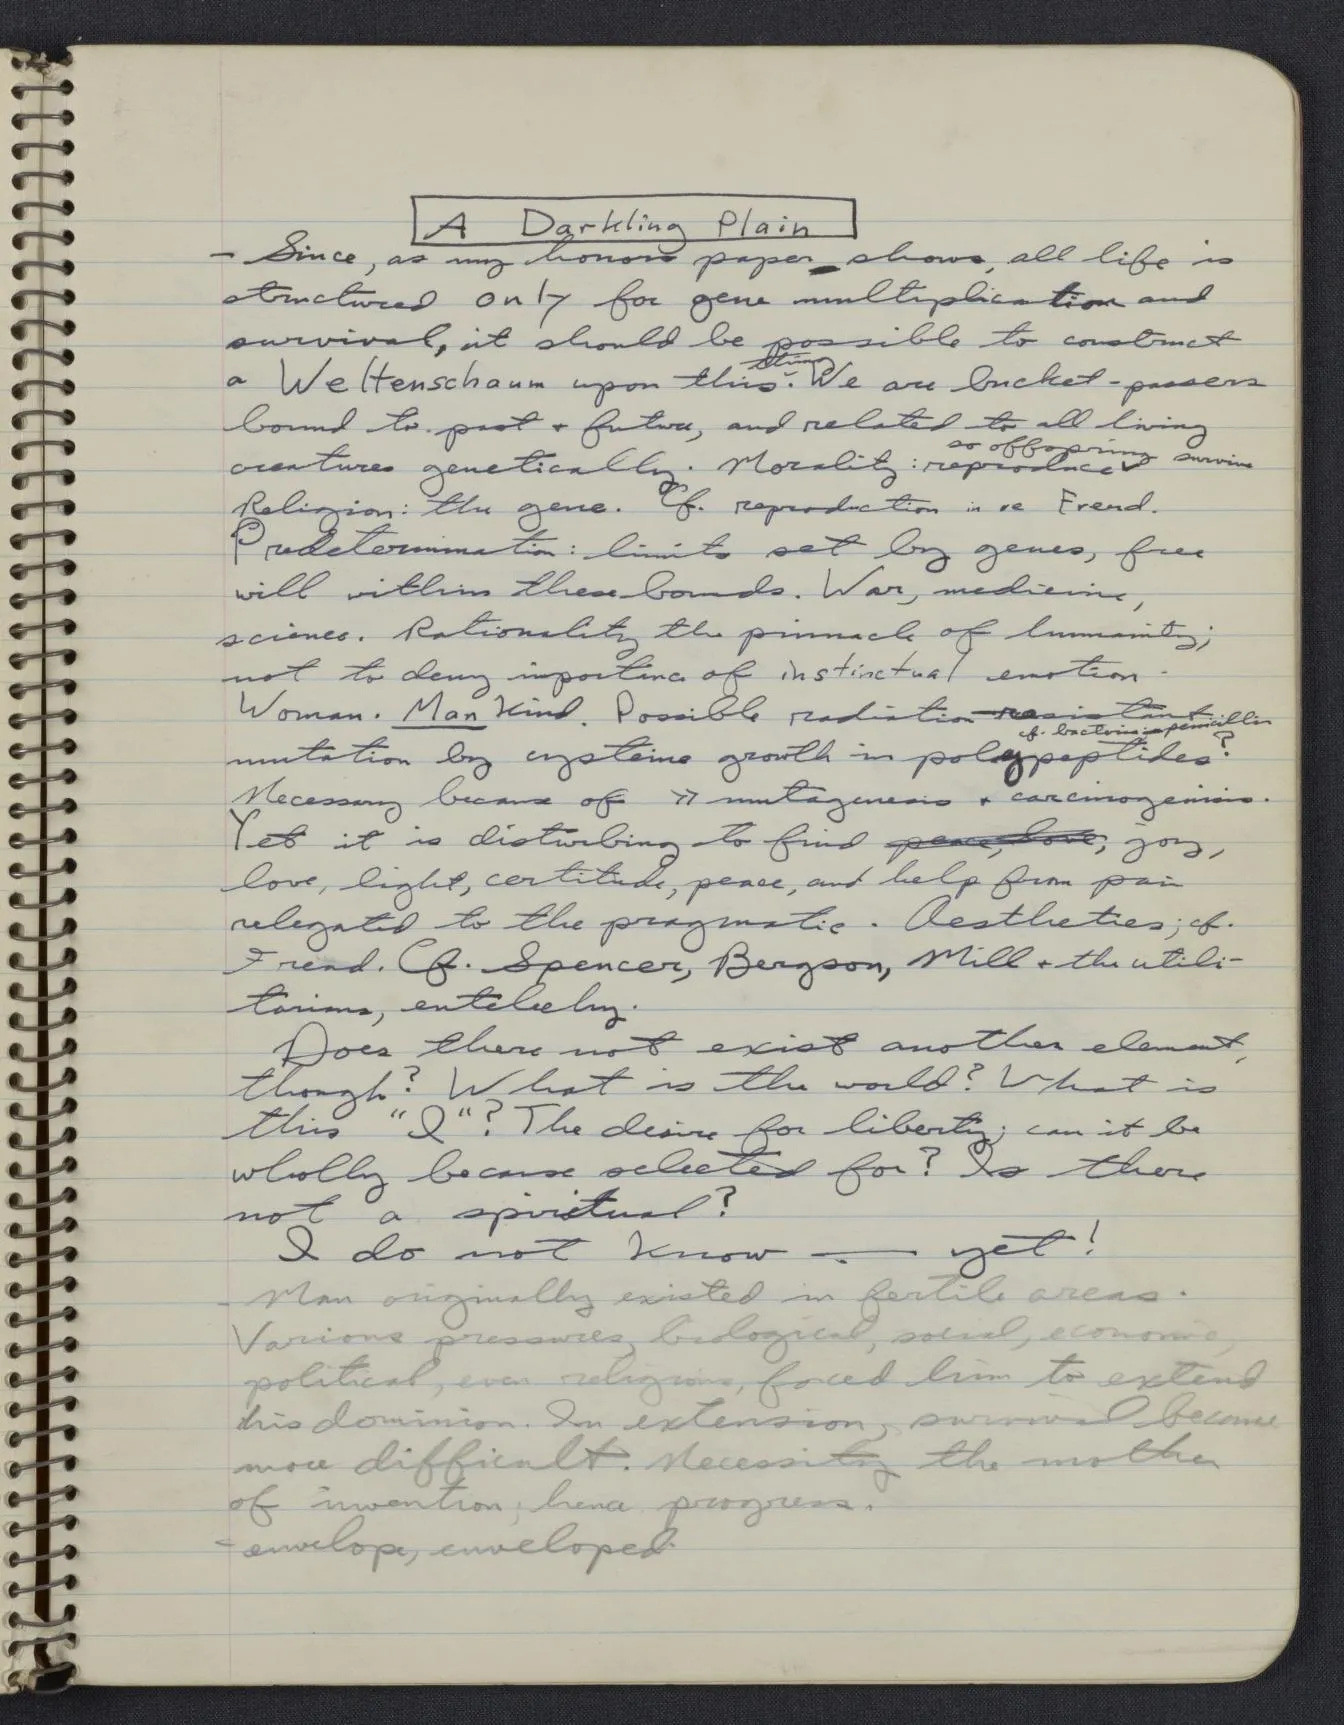 A Darkling Plain
- Since, as my honors paper shows, all life is
structured only for gene multiplication and
survival, it should be possible to construct
a Weltenschaum upon this. We are bucket-passers
bound to past + future, and related to all living
so offspring survive
creatures genetically. Morality: reproduce
Religion: the gene. Cf. reproduction in re Freud.
Predetermination: limits set by genes, free
will within these bounds. War, medicine,
science. Rationality the pinnacle of humanity;
not to deny importance of instinctual emotion.
Woman. Man Kind. Possible radiation-resistant
cf. bacteria penicillin
mutation by cysteine growth in polypeptides?
Necessary because of >> mutagenesis + carcinogenisis.
Yet it is disturbing to find peace, love, joy,
love, light, certitude, peace, and help from pain
relegated to the pragmatic. Aesthetics; cf.
Freud. Cf. Spencer, Bergson, Mill + the utili-
tarians, entelechy.
Does there not exist another element,
though? What is the world? What is
this "I"? The desire for liberty; can it be
wholly because selected for? Is there
not a spiritual?
I do not know — yet!
- Man originally existed in fertile areas.
Various pressures, biological, social, economic,
political, even religious, forced him to extend
his dominion. In extension, survival became
more difficult. Necessity the mother
of invention; hence progress.
- envelope, enveloped.